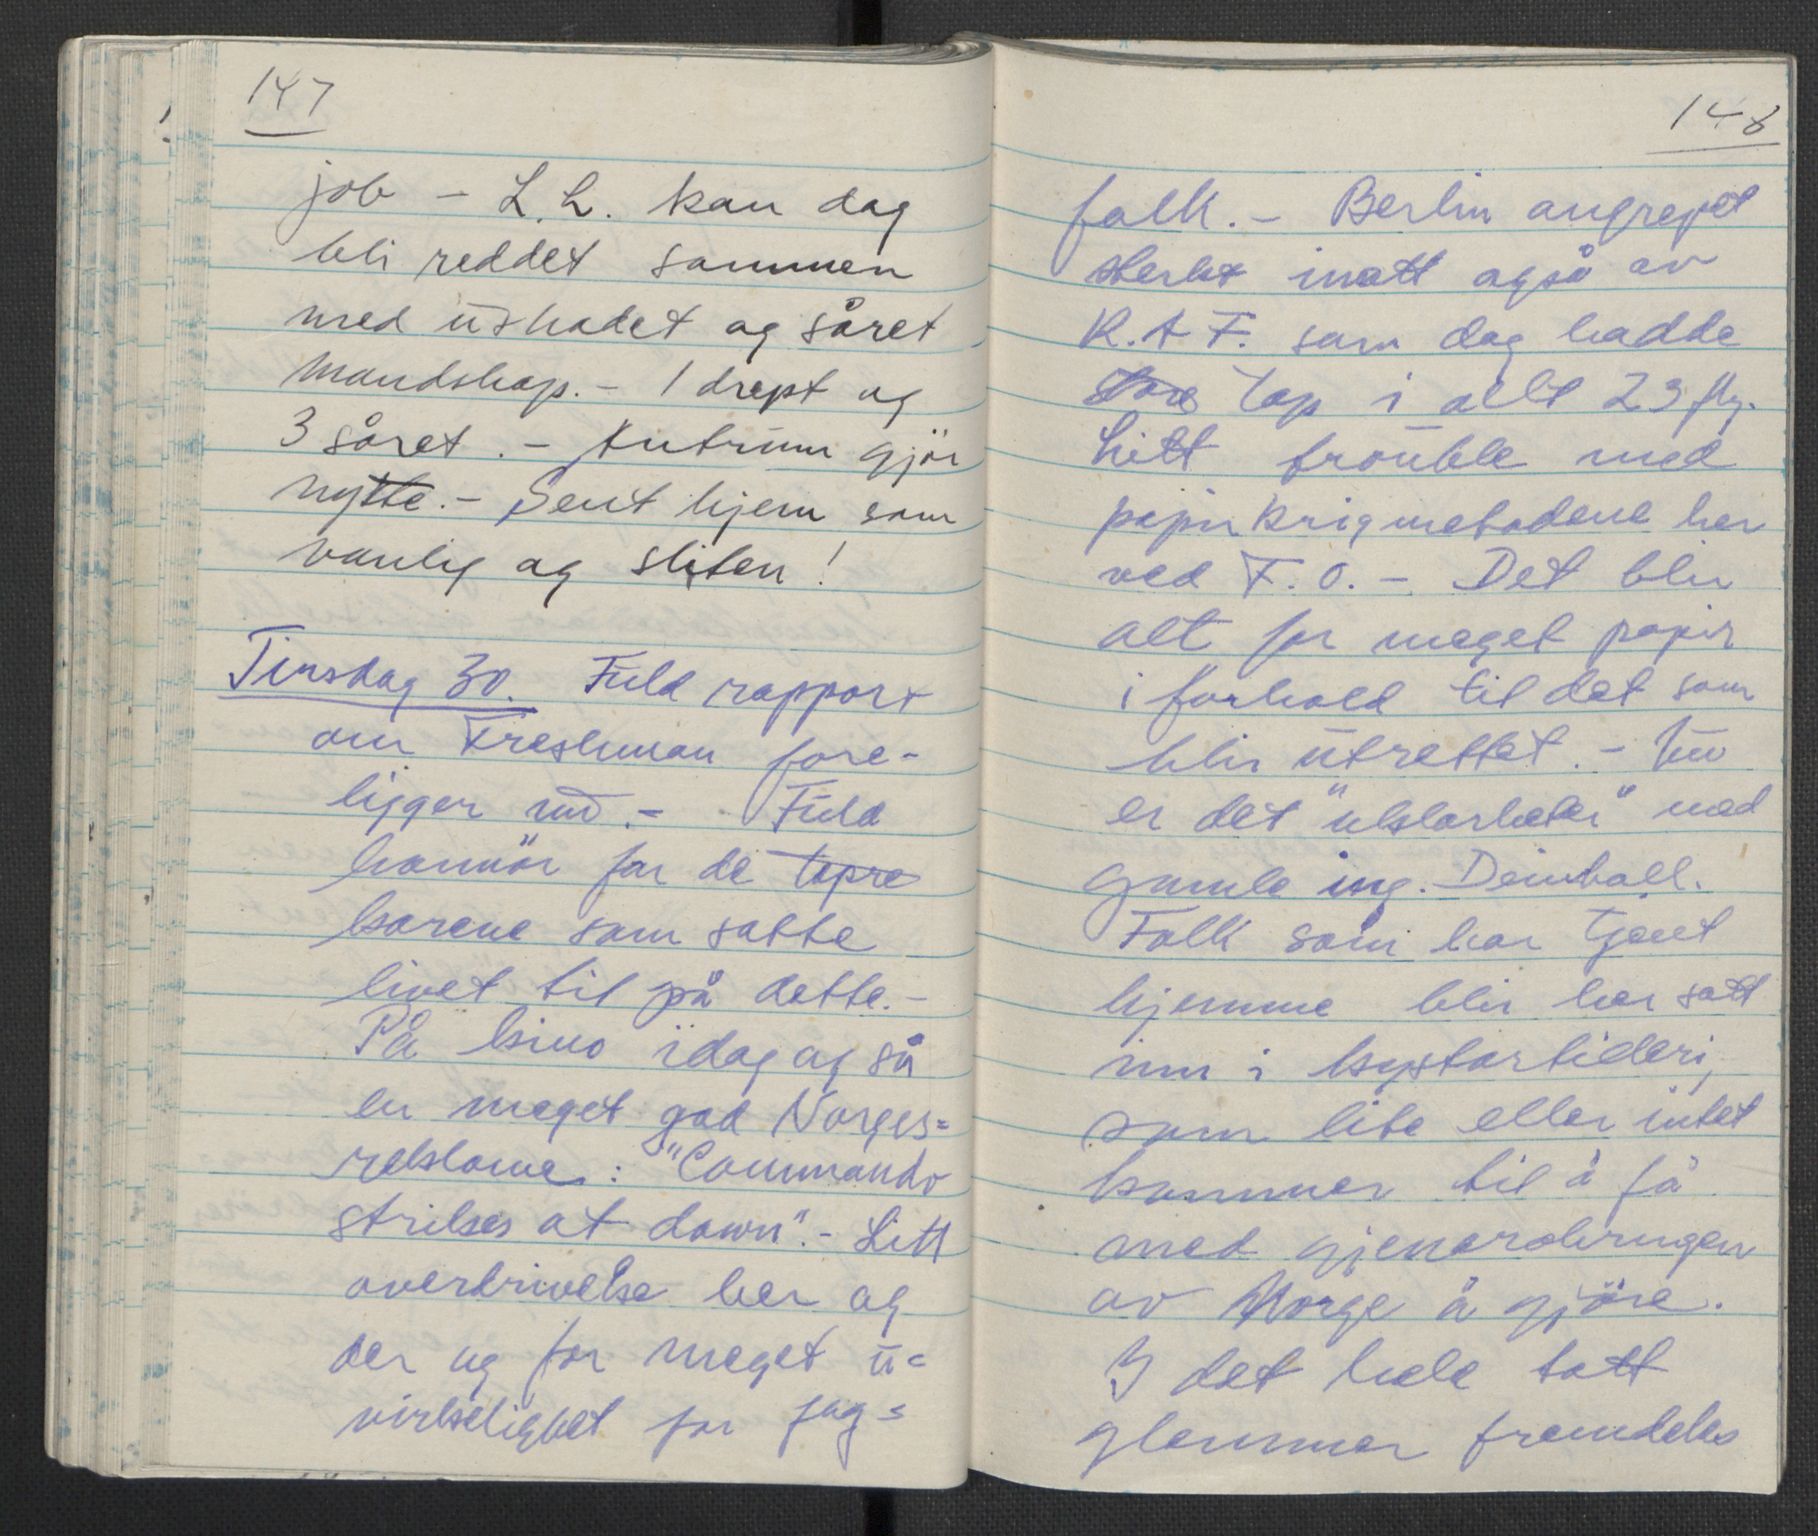 147
job – L.L. kan dog
bli reddet sammen
med uskadet og såret
mandskap. – 1 drept og
3 såret. – gjör
nytte. – Sent hjem som
vanlig og sliten!
Tirsdag 30. Fuld rapport
om Freshman fore-
ligger nu. – Fuld
honnör for de tapre
karene som satte
livet til på dette. –
På kino idag og så
en meget god Norges=
reklame: "Commando
strikes at dawn". – Litt
overdrivelse her og
der og for meget u=
virkelighet for fag=
148
folk. – Berlin angrepet
sterkt inatt også av
R.A.F. som dog hadde
store tap i alt 23 fly.
Litt trouble med
papirkrigmetodene her
ved F.O. – Det blir
alt for meget papir
i forhold til det som
blir utrettet. – Nu
er det "ukslarheter" med
gamle ing.
Folk som har tjent
hjemme blir her satt
inn i kystartilleri,
som lite eller intet
kommer til å få
med gjenerobringen
av Norge å gjöre.
I det hele tatt
glemmer fremdeles